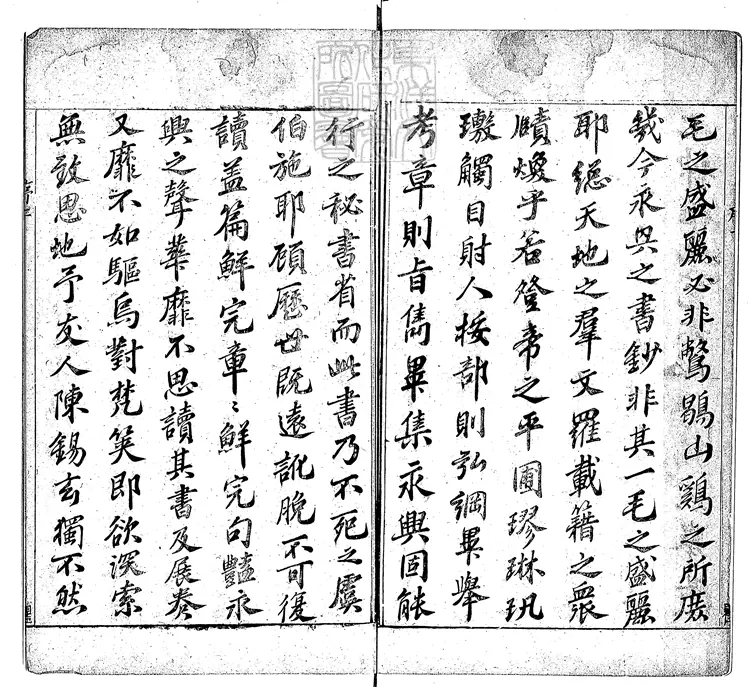 毛之盛麗必非鷩鶡山鷄之所庶
幾今永興之書鈔非其一毛之盛麗
耶總天地之羣文羅載籍之衆
賾煥乎若登帝之平圃璆琳玑
璈觸目射人按部則弘綱畢舉
考章則旨雋畢集永興固能
行之秘書省而此書乃不死之虞
伯施耶顧歷世既遠訛脫不可復
讀盖篇鮮完章〻鮮完句豔永
興之聲華靡不思讀其書及展卷
又靡不如驅烏對梵筴即欲深索
無致思地予友人陳錫玄獨不然